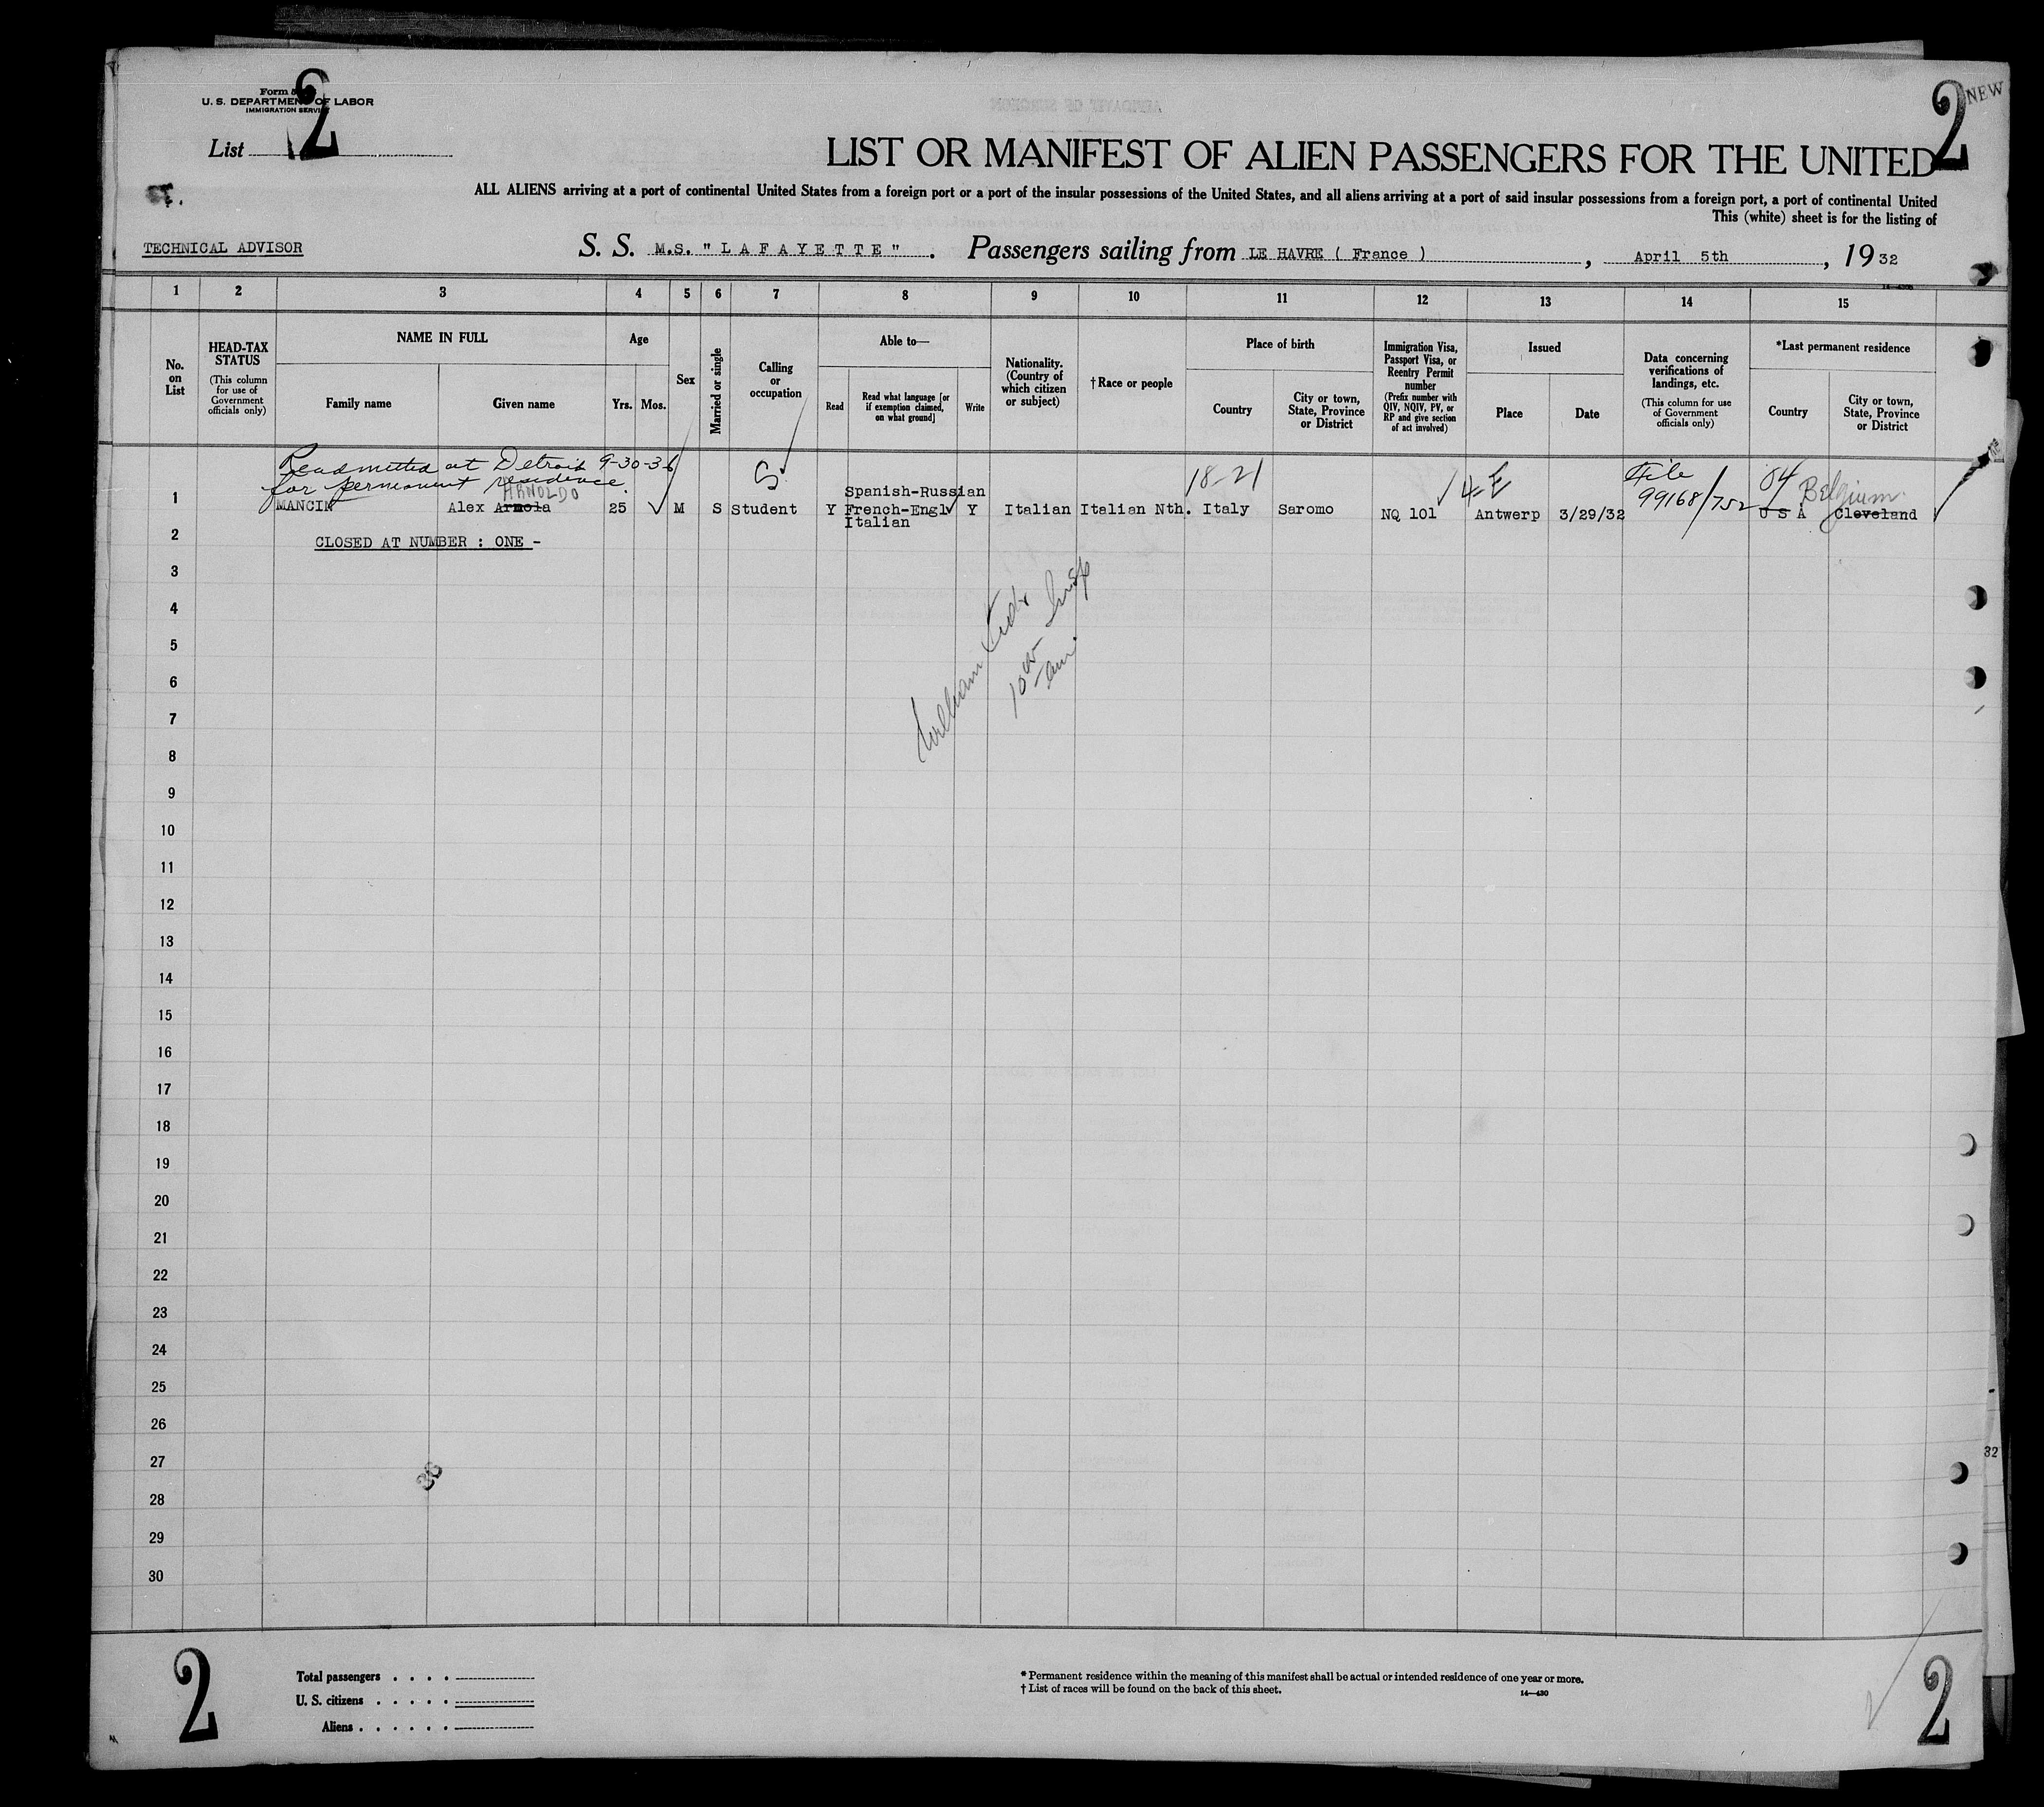 2
2 NEW
U. S. DEPARTMENT OF LABOR
IMMIGRATION SERVICE
List 2
LIST OR MANIFEST OF ALIEN PASSENGERS FOR THE UNITED
ALL ALIENS arriving at a port of continental United States from a foreign port or a port of the insular possessions of the United States, and all aliens arriving at a port of said insular possessions from a foreign port, a port of continental United
This (white) sheet is for the listing of
TECHNICAL ADVISOR S. S. M.S. " L A F A Y E T T E " . Passengers sailing from LE HAVRE ( France ) , April 5th , 19 32
1 2 3 4 5 6 7 8 9 10 11 12 13 14 15
No. on List
HEAD-TAX STATUS
(This column for use of Government officials only)
NAME IN FULL
Family name
Given name
Age
Yrs. Mos.
Sex
Married or single
Calling or occupation
Able to—
Read
Read what language [or if exemption claimed, on what ground]
Write
Nationality. (Country of which citizen or subject)
†Race or people
Place of birth
Country
City or town, State, Province or District
Immigration Visa, Passport Visa, or Reentry Permit number
(Prefix number with QIV, NQIV, PV, or RP and give section of act involved)
Issued
Place
Date
Data concerning verifications of landings, etc.
(This column for use of Government officials only)
*Last permanent residence
Country
City or town, State, Province or District
Readmitted at Detroit 9-30-36
for permanent residence.
ARNOLDO
S
18-21
4-E
File
99168/752
04 Belgium
Spanish-Russian
1 MANCIN Alex Arnola 25 M S Student Y French-Engl Y Italian Italian Nth. Italy Saromo NQ 101 Antwerp 3/29/32 U S A Cleveland
Italian
2 CLOSED AT NUMBER : ONE -
3
4
5
6
7
8
9
10
11
12
13
14
15
16
17
18
19
20
21
22
23
24
25
26
27
28
29
30
32
2
Total passengers . . . .
U. S. citizens . . . . .
Aliens . . . . . .
*Permanent residence within the meaning of this manifest shall be actual or intended residence of one year or more.
†List of races will be found on the back of this sheet.
14—430
2